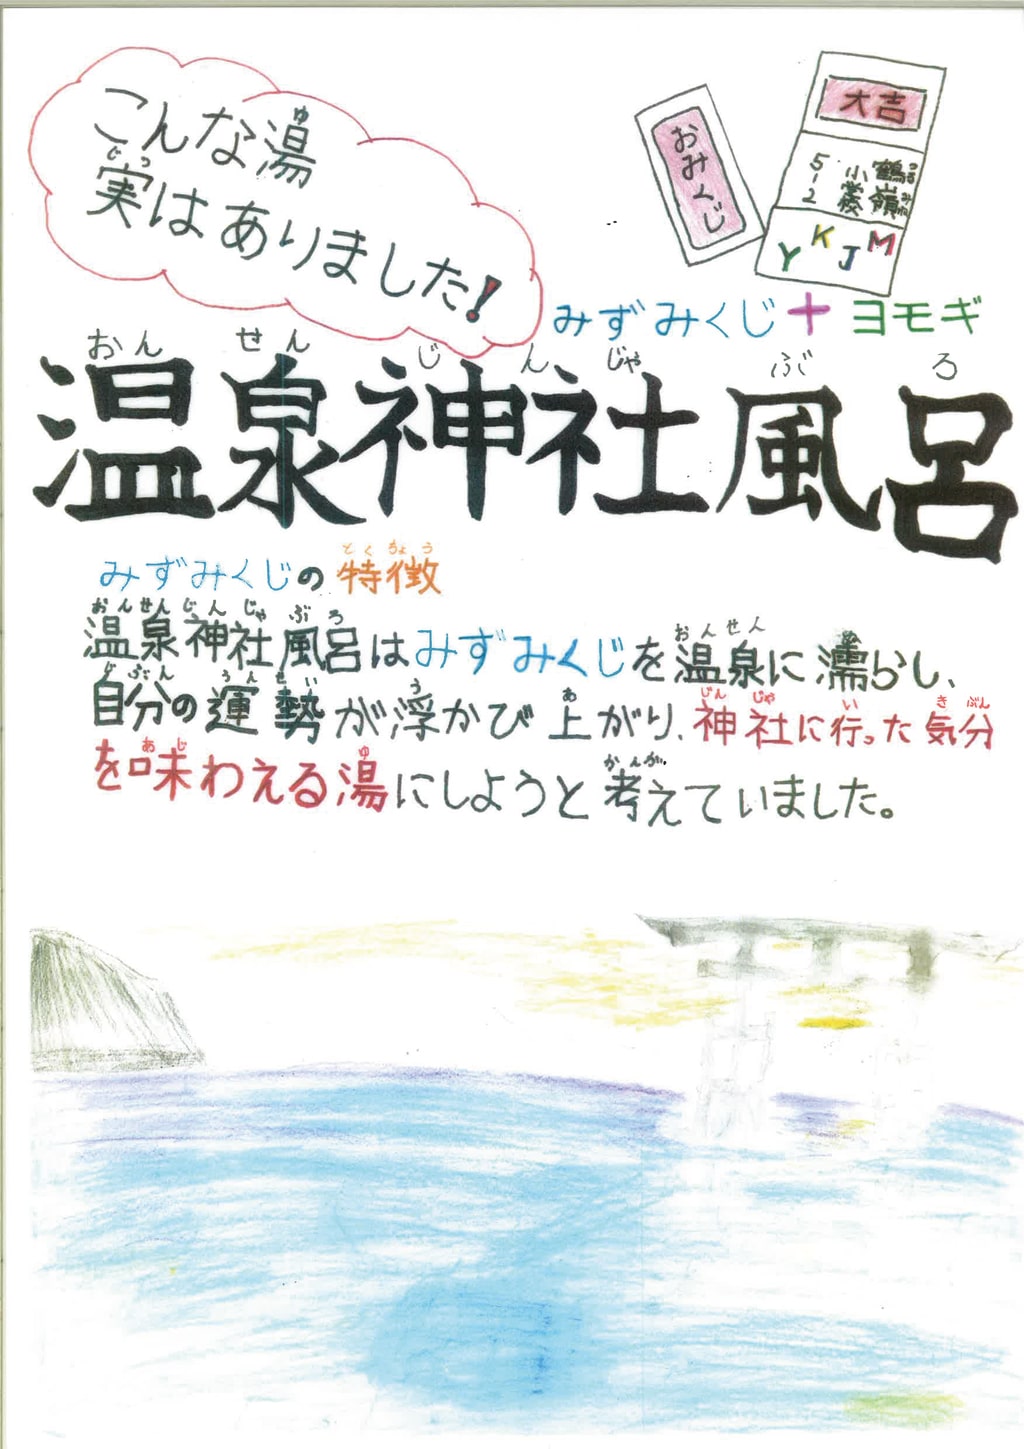 こんな湯
実はありました!
おみくじ
大吉
鶴嶺
小学校
5-2
YKJM
みずみくじ+ヨモギ
おんせんじんじゃぶろ
温泉神社風呂
みずみくじの特徴
温泉神社風呂はみずみくじを温泉に濡らし、
自分の運勢が浮かび上がり、神社に行った気分
を味わえる湯にしようと考えていました。